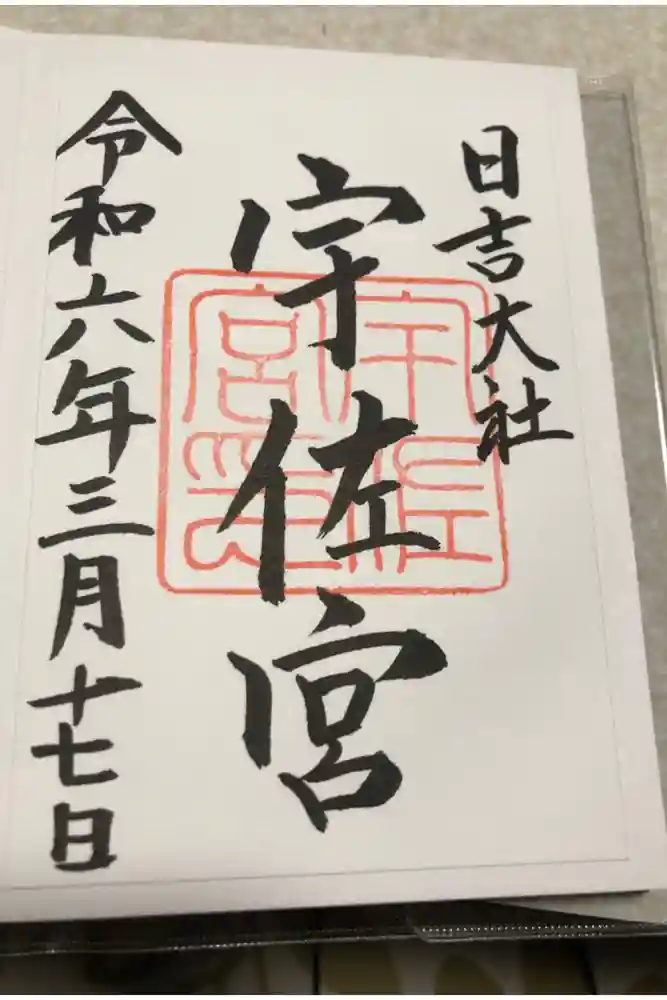 日吉大社
宇佐宮
宇佐宮印
令和六年三月十七日